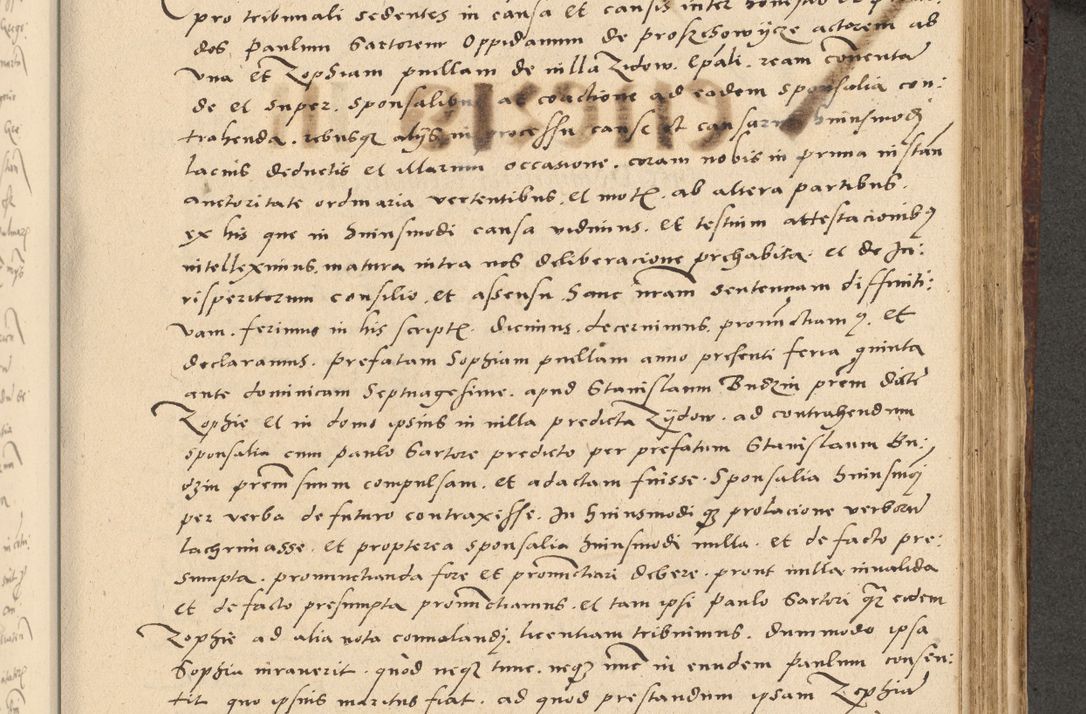 pro tribunali sedentes in causa et causis inter
dos Paulum Sartorem Oppidanum de proszchowycze actorem ab
una et Zophiam puellam de villa Zidow. Epali. ream conventã
de et super. sponsalibus ac coactione ad eadem sponsalia con:
trahenda. rebusqz alijs in processu cause et causarum huiusmodj
lacius deductis et illarum occasione. coram nobis in prima instan
auctoritate ordinaria vertentibus. et motis. ab altera partibus.
ex his que in huiusmodi causa vidimus. et testium attestacionibus
intelleximus. matura intra nos deliberacione prehabita. et de Ju:
risperitorum consilio. et assensu hanc nram sententiam diffiniti:
vam. ferimus in his scriptis. dicimus. decernimus. pronunctiamus. et
declaramus. prefatam Sophiam puellam anno presenti feria quinta
ante dominicam Septuagesime. apud Stanislaum Budzin prem dicte
Zophie et in domo ipsius in villa predicta Zydow. ad contrahendum
sponsalia cum paulo Sartore predicto per prefatum Stanislaum Bu:
dzin prem suum compulsam. et adactam fuisse. Sponsalia huiusmodj
per verba de futuro contraxesse. In huiusmodi qz prolacione verborũ
lachrimasse. et propterea sponsalia huiusmodi nulla. et de facto pre:
sumpta. pronunctianda fore et pronunctiari debere. prout nulla invalida
et de facto presumpta pronunctiamus. et tam ipsi Paulo Sartori qz eidem
Zophie ad alia vota convolandj. licentiam tribuimus. dummodo ipsa
Sophia iuraverit. quod neqz tunc. neqz nunc in eundem Paulum consen:
tit quo ipsius maritus fiat. ad quod prestandum ipsam Zophiã